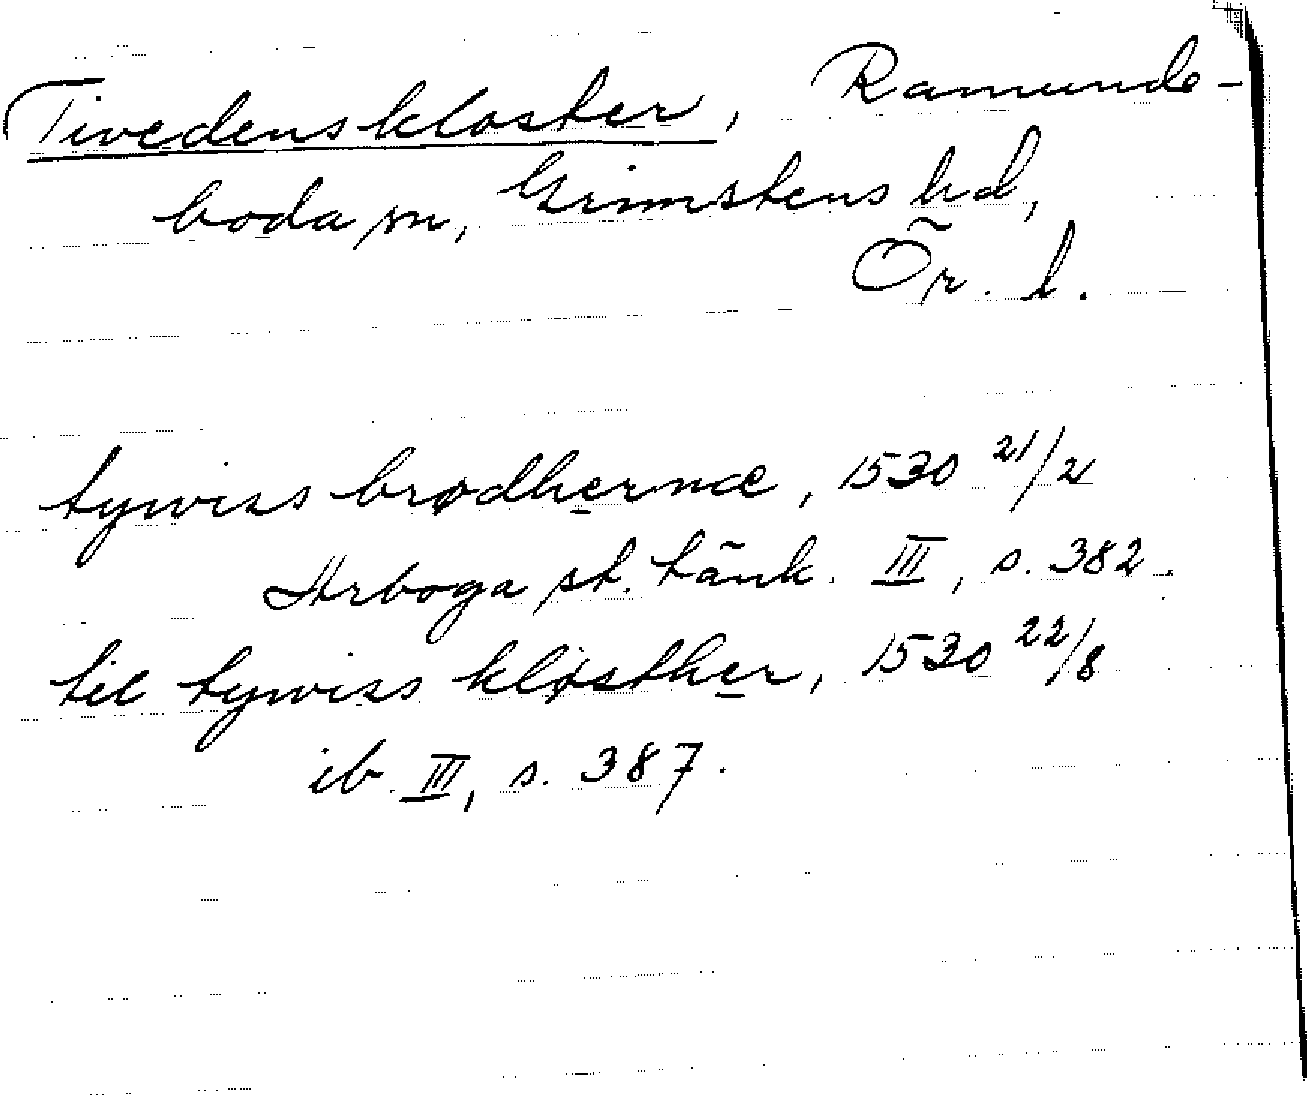 Tivedens kloster, Ramunde-
boda sn, Grimstens hd,
Ör. l.
tywiss brødhernæ, 1530 21/2
Arboga st. tänk. III, s. 382.
til tywiss kløsther, 1530 22/8
ib. III, s. 387.